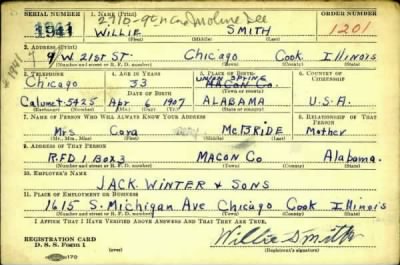 SERIAL NUMBER 1. NAME (Print) ORDER NUMBER
1941 WILLIE SMITH 1201
(First) (Middle) (Last)
2. ADDRESS (Print)
9 W 21st St. Chicago Cook Illinois
(Number and street or R. F. D. number) (Town) (County) (State)
3. TELEPHONE 4. AGE IN YEARS 5. PLACE OF BIRTH 6. COUNTRY OF CITIZENSHIP
Chicago 33 UNION SPRING MACON CO.
DATE OF BIRTH (Town or county)
Calumet-5425 Apr 6 1907 ALABAMA U.S.A.
(Exchange) (No.) (Mo.) (Day) (Yr.) (State or country)
7. NAME OF PERSON WHO WILL ALWAYS KNOW YOUR ADDRESS 8. RELATIONSHIP OF THAT PERSON
Mrs Cora McBRIDE Mother
(Mr., Mrs., Miss) (First) (Middle) (Last)
9. ADDRESS OF THAT PERSON
RFD 1 Box 3 MACON Co Alabama.
(Number and street or R. F. D. number) (Town) (County) (State)
10. EMPLOYER'S NAME
JACK WINTER & SONS
11. PLACE OF EMPLOYMENT OR BUSINESS
1615 S. Michigan Ave Chicago Cook Illinois
(Number and street or R. F. D. number) (Town) (County) (State)
I AFFIRM THAT I HAVE VERIFIED ABOVE ANSWERS AND THAT THEY ARE TRUE.
REGISTRATION CARD
D. S. S. FORM 1 Willie Smith
(Registrant's signature)